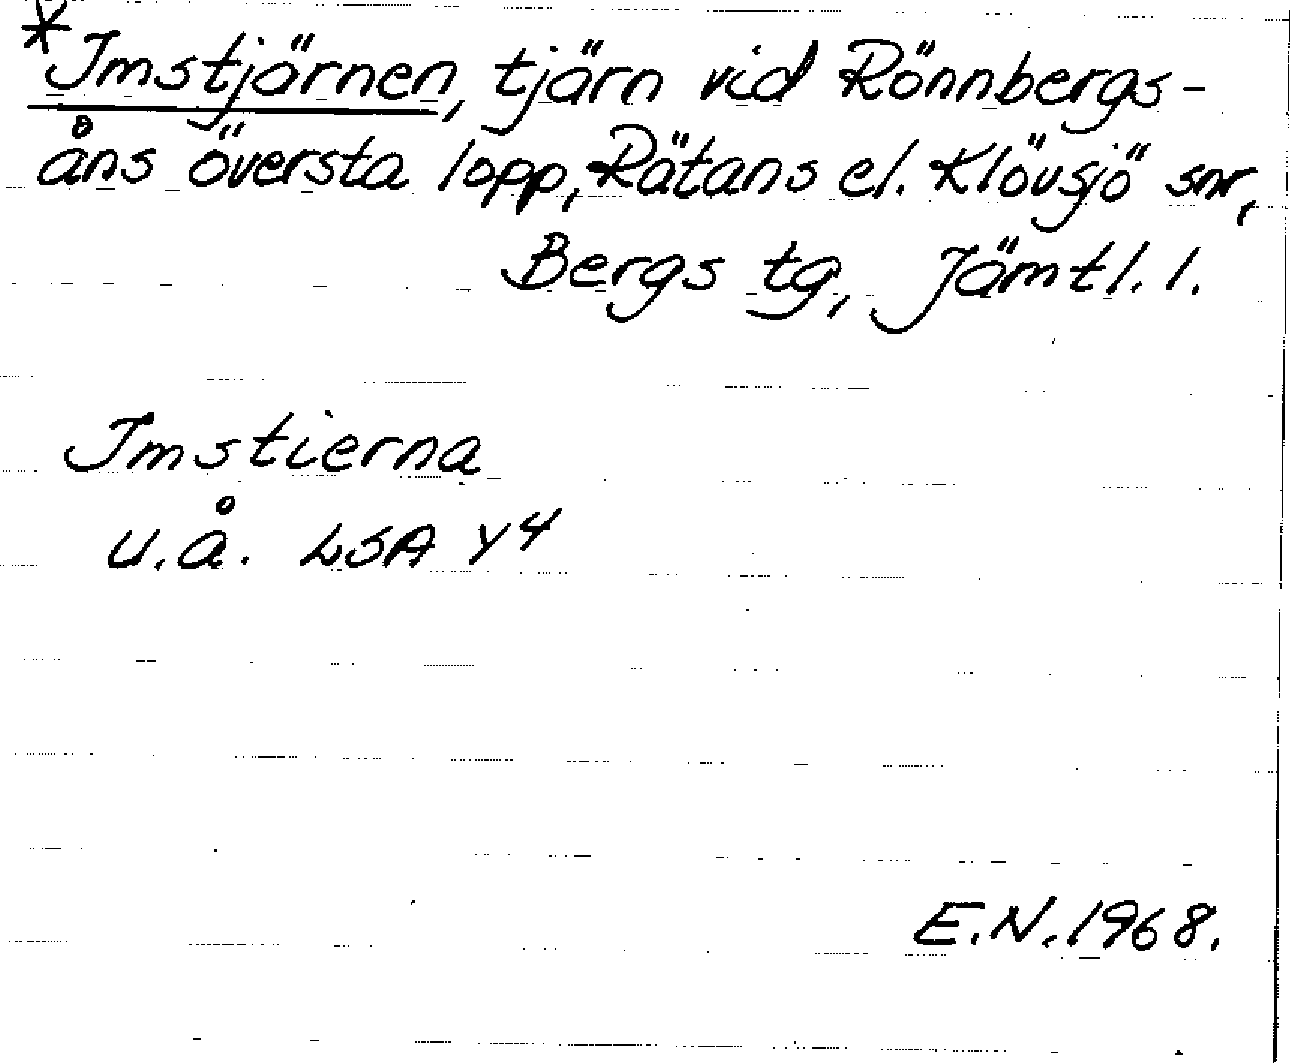 *Imstjärnen, tjärn vid Rönnbergs-
åns översta lopp, Rätans el. Klövsjö snr,
Bergs tg, Jämtl. l.
Imstierna
u.å. LSA Y4
E.N. 1968.